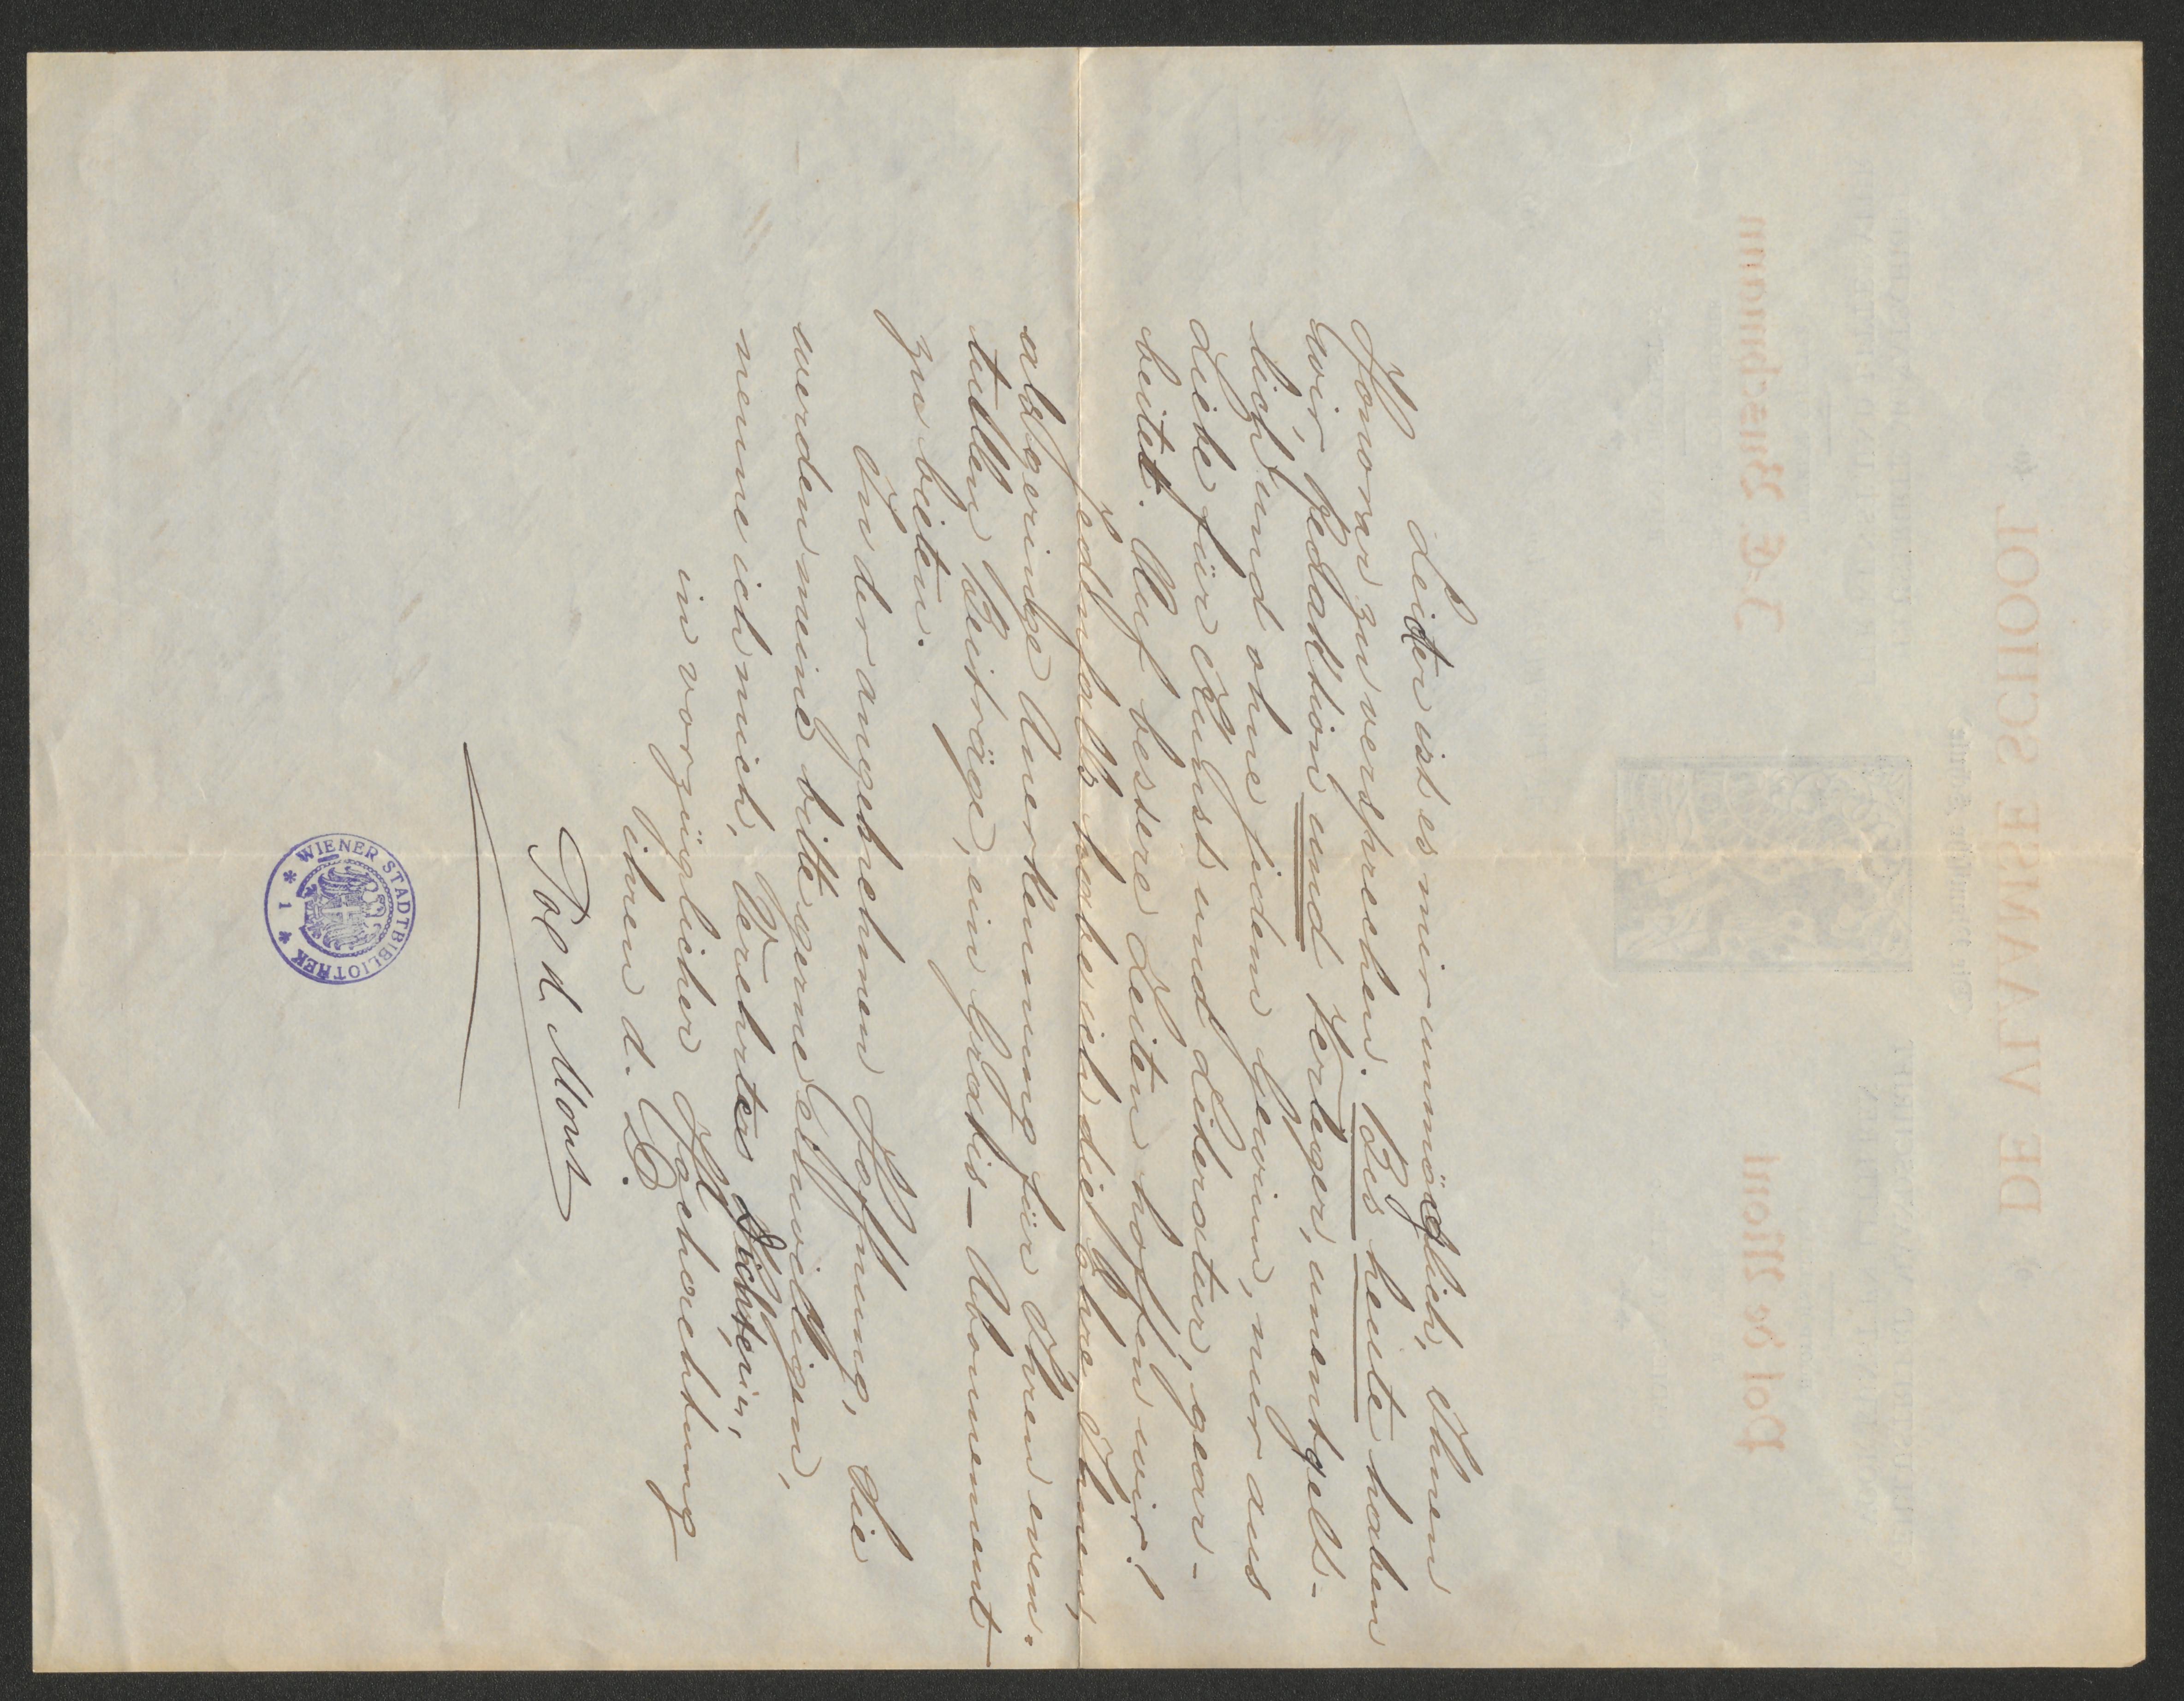 Leider ist es mir unmöglich, Ihnen
Honorar zu versprechen. Bis heute haben
wir, Redaktion und Verleger, unentgelt-
lich und ohne jeden Gewinn, nur aus
Liebe für Kunst und Literatur, gear-
beitet. Auf bessere Zeiten hoffen wir!
Jedenfalls habe ich die Ehre Ihnen,
als geringe Anerkennung für Ihren even-
tuellen Beiträge, ein Gratis-Abonnement
zu bieten.
In der angenehmen Hoffnung, Sie
werden meine bitte gerne einwilligen,
nenne ich mich, Verehrtes Dichterin,
in vorzüglicher Hochachtung
ihren d. D.
Pol d. Mont
WIENER STADTBIBLIOTHEK
* 1 *
DE VLAAMSE SCHOOL
Pol de Mont
J.-E. Buschmann